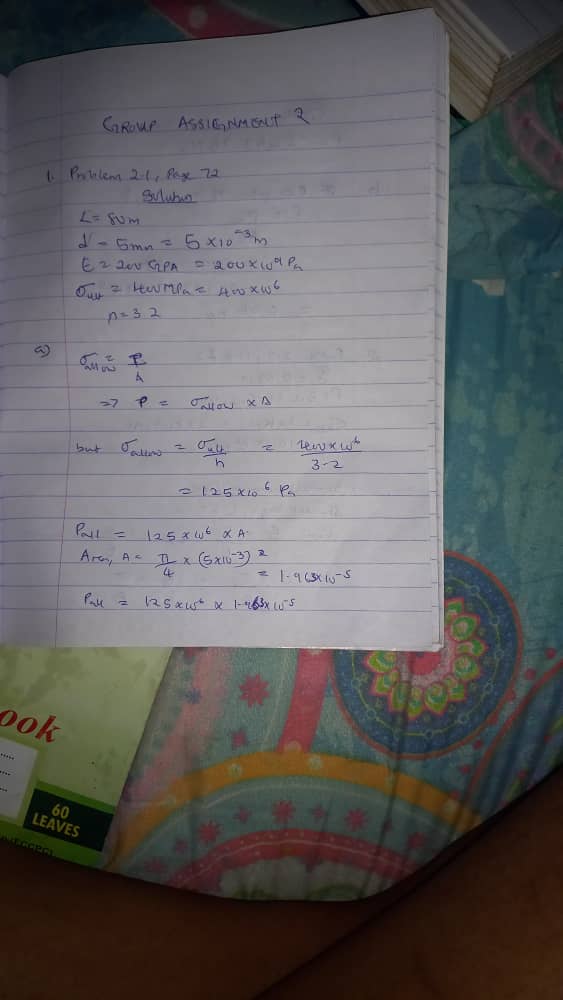 GROUP ASSIGNMENT 2
1. Problem 2.1, Page 72
Solution
L = 80m
d = 5mm = 5 × 10⁻³m
E = 200 GPA = 200×10⁹ Pa
σult = 400MPa = 400×10⁶
n = 3.2
a) σallow = P/A
=> P = σallow × A
but σallow = σult/n = 400×10⁶/3.2
= 125×10⁶ Pa
Pall = 125×10⁶ × A.
Area, A = π/4 × (5×10⁻³)² = 1.963×10⁻⁵
Pall = 125×10⁶ × 1.963×10⁻⁵
ook
60
LEAVES